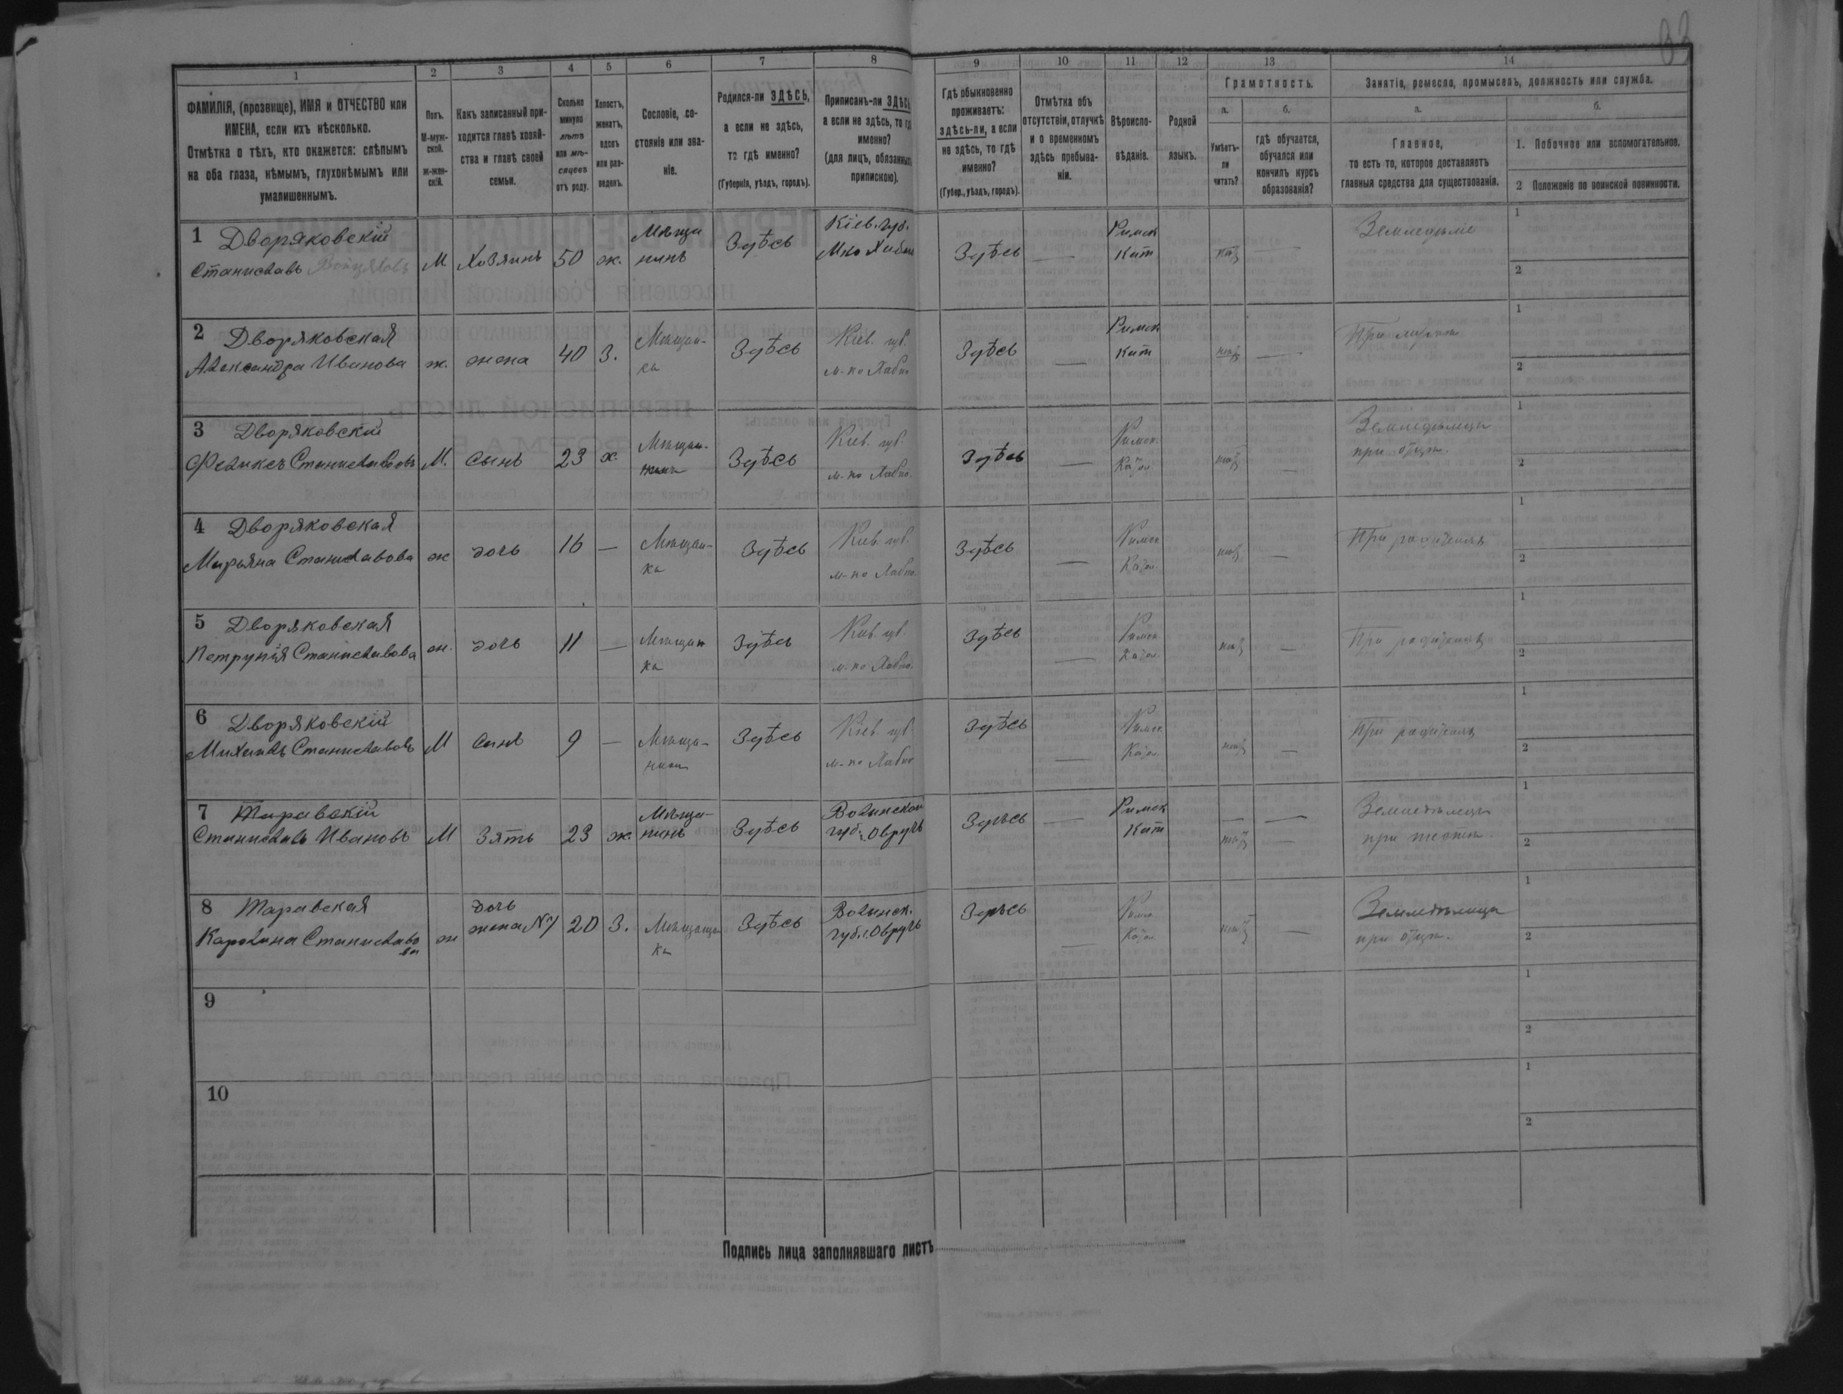 1 2 3 4 5 6 7 8 9 10 11 12 13 14
ФАМИЛІЯ, (прозвище), ИМЯ и ОТЧЕСТВО или
ИМЕНА, если ихъ нѣсколько.
Отмѣтка о тѣхъ, кто окажется: слѣпымъ
на оба глаза, нѣмымъ, глухонѣмымъ или
умалишеннымъ.
Полъ.
М-муж-
ской.
ж-жен-
скій.
Какъ записанный при-
ходится главѣ хозяй-
ства и главѣ своей
семьи.
Сколько
минуло
лѣтъ
или мѣ-
сяцевъ
отъ роду.
Холостъ,
женатъ,
вдовъ
или раз-
веденъ.
Сословіе, со-
стояніе или зва-
ніе.
Родился-ли ЗДѢСЬ,
а если не здѣсь,
то гдѣ именно?
(Губернія, уѣздъ, городъ).
Приписанъ-ли ЗДѢСЬ
а если не здѣсь, то гдѣ
именно?
(для лицъ, обязанныхъ
припискою).
Гдѣ обыкновенно
проживаетъ:
здѣсь-ли, а если
не здѣсь, то гдѣ
именно?
(Губер., уѣздъ, городъ).
Отмѣтка объ
отсутствіи, отлучкѣ
и о временномъ
здѣсь пребыва-
ніи.
Вѣроиспо-
вѣданіе.
Родной
языкъ.
Грамотность.
а.
Умѣетъ-
ли
читать?
б.
гдѣ обучается,
обучался или
кончилъ курсъ
образованія?
Занятіе, ремесло, промыселъ, должность или служба.
а.
Главное,
то есть то, которое доставляетъ
главныя средства для существованія.
б.
1. Побочное или вспомогательное.
2 Положеніе по воинской повинности.
1 Дворяковскій
Станиславъ
М Хозяинъ 50 ж.
Мѣща
нинъ
Здѣсь
Кіев. губ.
Здѣсь —
Римск
Кат
нѣтъ —
Земледѣліе
1
2
2 Дворяковская
Александра Иванова
ж. жена 40 З.
Мѣщан-
ка
Здѣсь
Кіев. губ.
Здѣсь —
Римск
Кат
нѣтъ —
При мужѣ
1
2
3 Дворяковскій
Феликсъ Станиславовъ
М. сынъ 23 х.
Мѣщан-
нинъ
Здѣсь
Кіев. губ.
Здѣсь —
Римск
Катол.
нѣтъ —
при отцѣ.
1
2
4 Дворяковская
Марьяна Станиславова
ж дочь 16 —
Мѣщан-
ка
Здѣсь
Кіев. губ.
Здѣсь —
Римск
Катол.
нѣтъ —
При родителяхъ
1
2
5 Дворяковская
Петрунія Станиславова
ж. дочь 11 —
Мѣщан
ка
Здѣсь
Кіев. губ.
Здѣсь —
Римск
Катол.
нѣтъ —
При родителяхъ
1
2
6 Дворяковскій
Михаилъ Станиславовъ
М сынъ 9 —
Мѣща-
нинъ
Здѣсь
Кіев. губ.
Здѣсь —
Римск
Катол.
нѣтъ —
При родителяхъ
1
2
7 Таравскій
Станиславъ Ивановъ
М Зять 23 ж.
Мѣща-
нинъ
Здѣсь
Волынской
губ. г. Овручъ
Здѣсь —
Римск
Кат
— —
нѣтъ —
при тестѣ.
1
2
8 Таравская
Каролина Станиславо
ва
ж
дочь
жена N7
20 З.
Мѣщан
ка
Здѣсь
Волынск.
губ. г. Овручъ
Здѣсь —
Римск
Катол.
нѣтъ —
при отцѣ.
1
2
9
1
2
10
1
2
Подпись лица заполнявшаго листъ